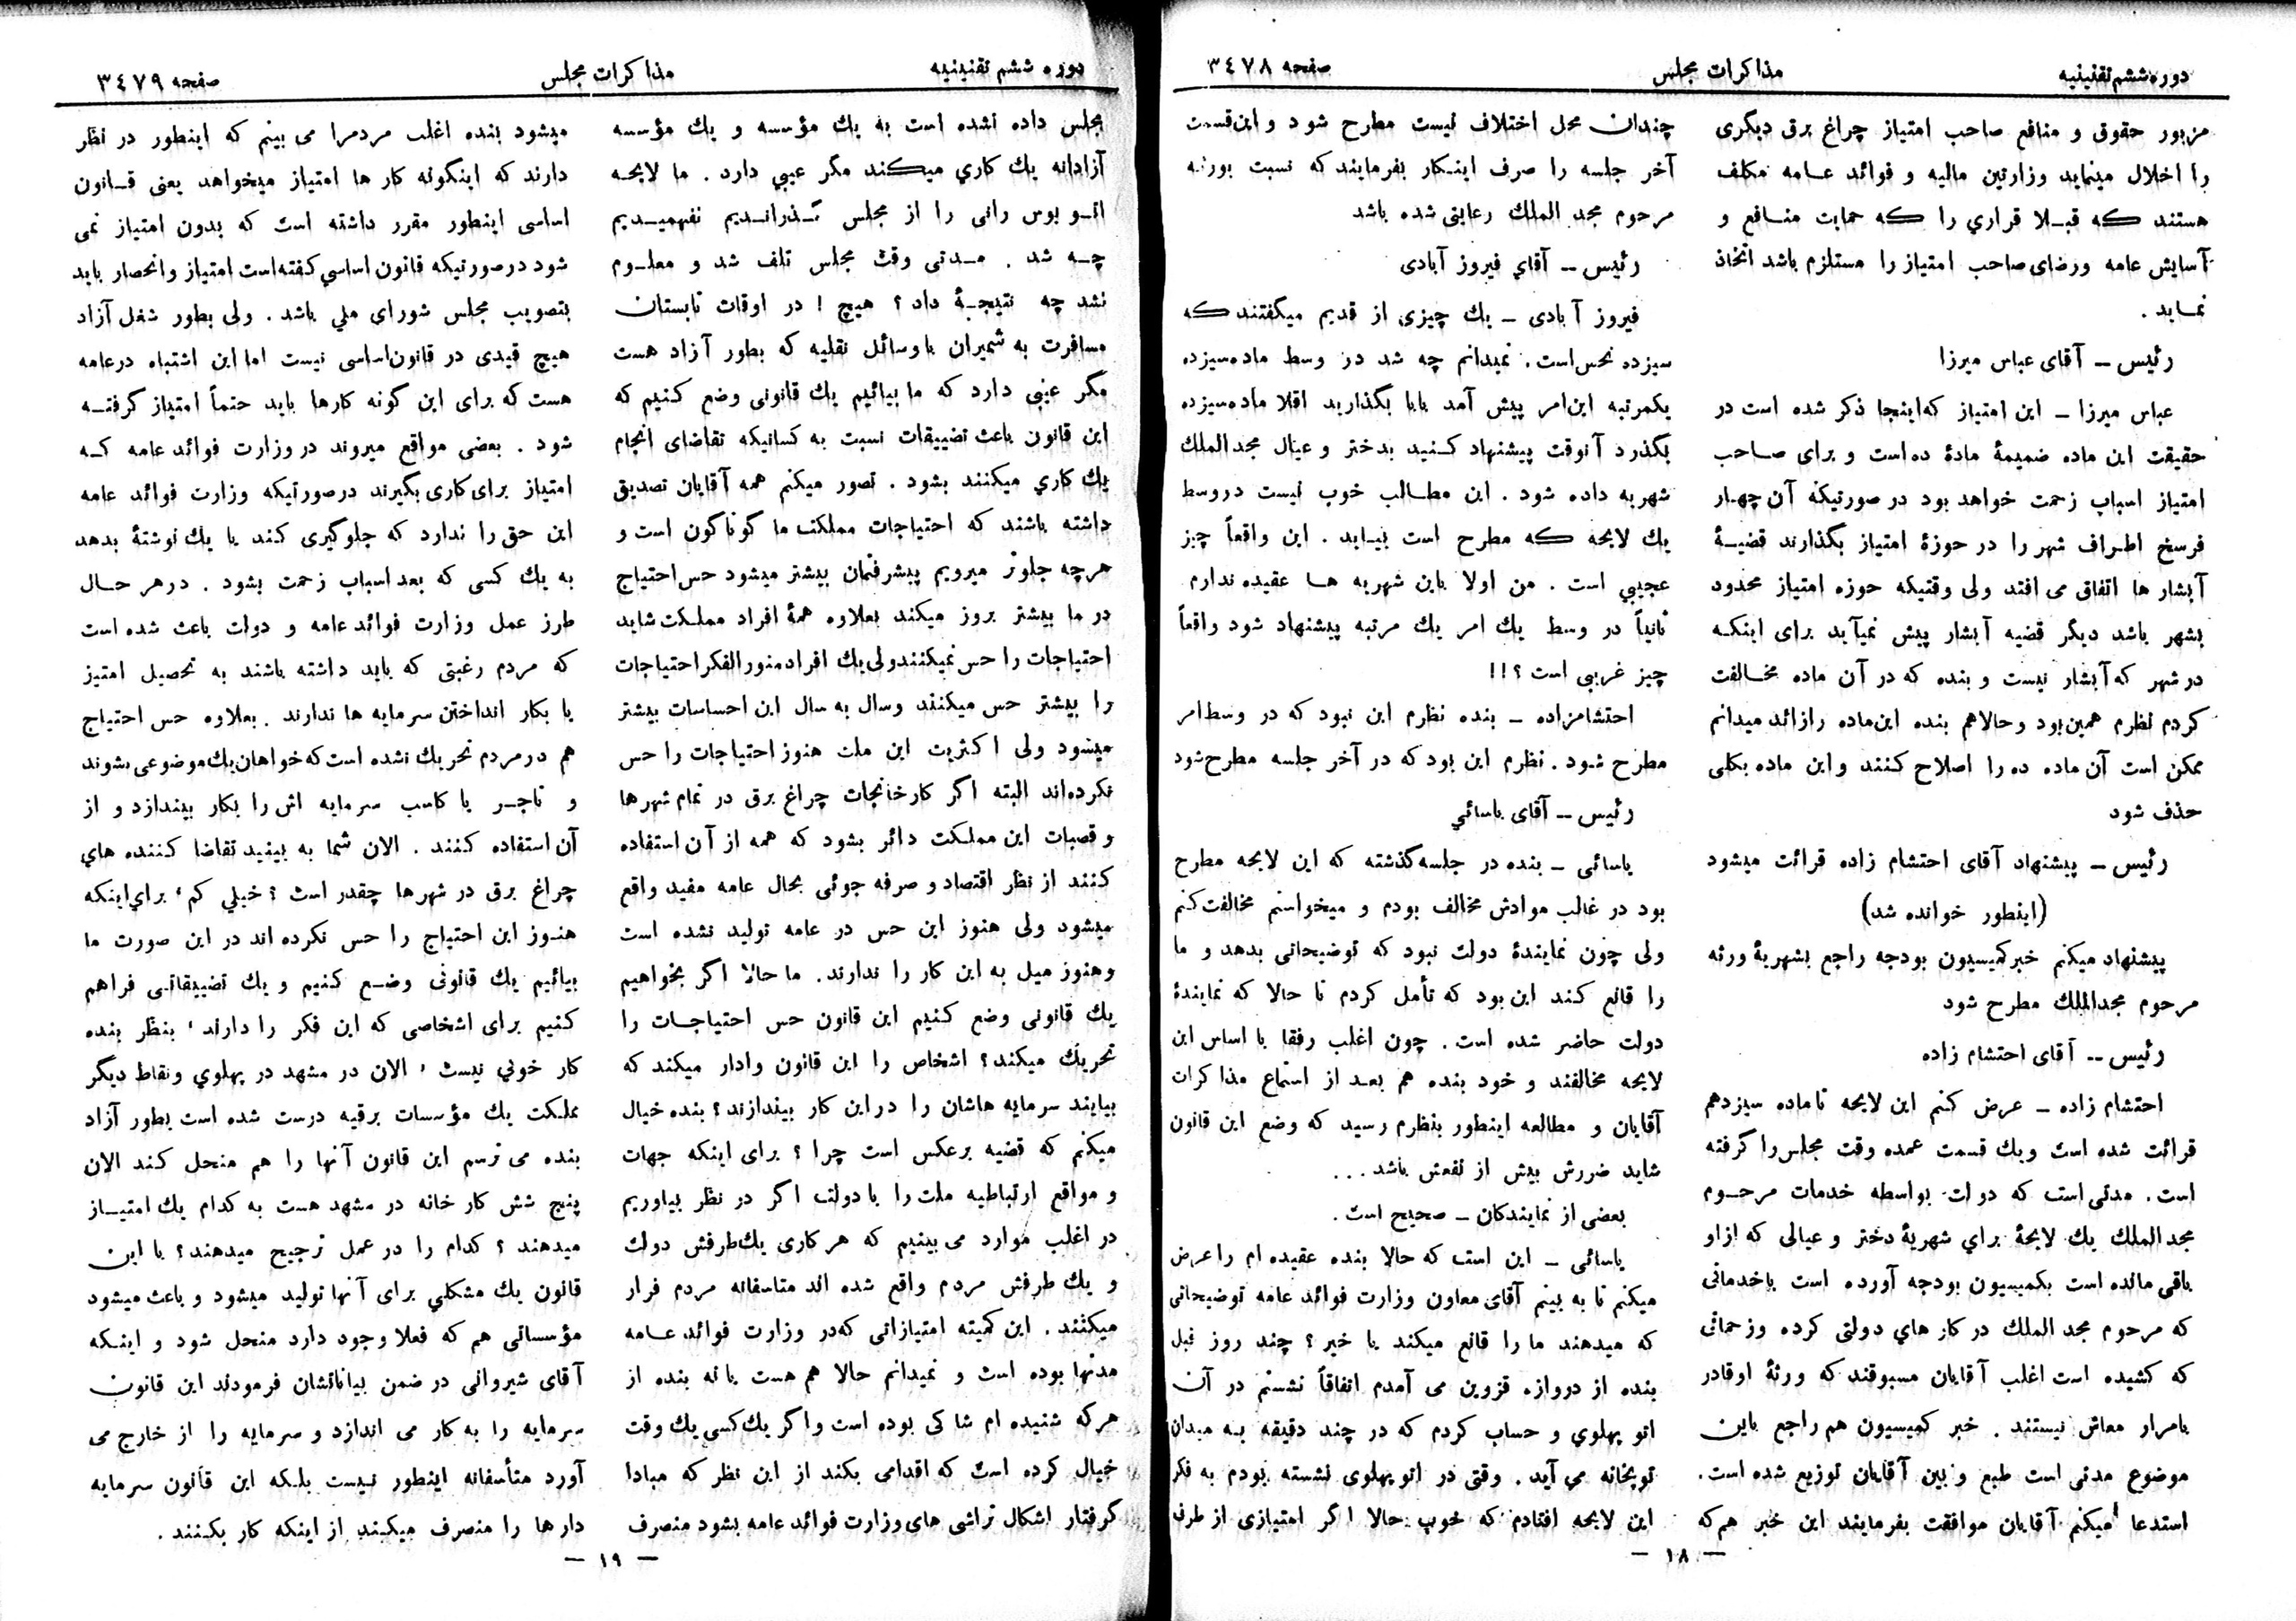 دوره ششم تقنینیه
مذاکرات مجلس
صفحه ۳۴۷۸
مزبور حقوق و منافع صاحب امتیاز چراغ برق دیگری
را اخلال مینماید وزارتین مالیه و فوائد عامه مکلف
هستند که قبلا قراری را که حمایت منافع و
آسایش عامه ورضای صاحب امتیاز را مستلزم باشد اتخاذ
نماید .
رئیس ــ آقای عباس میرزا
عباس میرزا ـ این امتیاز که اینجا ذکر شده است در
حقیقت این ماده ضمیمهٔ مادهٔ ده است و برای صاحب
امتیاز اسباب زحمت خواهد بود در صورتیکه آن چهار
فرسخ اطراف شهر را در حوزهٔ امتیاز بگذارند قضیهٔ
آبشار ها اتفاق می افتد ولی وقتیکه حوزه امتیاز محدود
بشهر باشد دیگر قضیه آبشار پیش نمیآید برای اینکه
در شهر که آبشار نیست و بنده که در آن ماده مخالفت
کردم نظرم همین بود و حالاهم بنده این ماده را زائد میدانم
ممکن است آن ماده ده را اصلاح کنند و این ماده بکلی
حذف شود
رئیس ــ پیشنهاد آقای احتشام زاده قرائت میشود
(اینطور خوانده شد)
پیشنهاد میکنم خبر کمیسیون بودجه راجع بشهریهٔ ورثه
مرحوم مجدالملك مطرح شود
رئیس -- آقای احتشام زاده
احتشام زاده ـ عرض کنم این لایحه تا ماده سیزدهم
قرائت شده است و یك قسمت عمده وقت مجلس را گرفته
است . مدتی است که دولت بواسطه خدمات مرحوم
مجد الملك یك لایحهٔ برای شهریهٔ دختر و عیالی که از او
باقی مانده است بکمیسیون بودجه آورده است با خدماتی
که مرحوم مجد الملك در کار های دولتی کرده وزحماتی
که کشیده است اغلب آقایان مسبوقند که ورثهٔ او قادر
بامرار معاش نیستند . خبر کمیسیون هم راجع باین
موضوع مدتی است طبع و بین آقایان توزیع شده است .
استدعا میکنم آقایان موافقت بفرمایند این خبر هم که
چندان محل اختلاف نیست مطرح شود و این قسمت
آخر جلسه را صرف اینکار بفرمایند که نسبت بورثه
مرحوم مجد الملك رعایتی شده باشد
رئیس ــ آقای فیروز آبادی
فیروز آبادی ـ یك چیزی از قدیم میگفتند که
سیزده نحس است . نمیدانم چه شد در وسط ماده سیزده
یکمرتبه این امر پیش آمد بابا بگذارید اقلا ماده سیزده
بگذرد آنوقت پیشنهاد کنید بدختر و عیال مجد الملك
شهریه داده شود . این مطالب خوب نیست در وسط
یك لایحه که مطرح است بیاید . این واقعاً چیز
عجیبی است . من اولا باین شهریه ها عقیده ندارم
ثانیاً در وسط یك امر یك مرتبه پیشنهاد شود واقعاً
چیز غریبی است ؟!!
احتشامزاده ـ بنده نظرم این نبود که در وسط امر
مطرح شود . نظرم این بود که در آخر جلسه مطرح شود
رئیس ــ آقای یاسائی
یاسائی ـ بنده در جلسه گذشته که این لایحه مطرح
بود در غالب موادش مخالف بودم و میخواستم مخالفت کنم
ولی چون نمایندهٔ دولت نبود که توضیحاتی بدهد و ما
را قانع کند این بود که تأمل کردم تا حالا که نمایندهٔ
دولت حاضر شده است . چون اغلب رفقا با اساس این
لایحه مخالفند و خود بنده هم بعد از استماع مذاکرات
آقایان و مطالعه اینطور بنظرم رسید که وضع این قانون
شاید ضررش بیش از نفعش باشد ...
بعضی از نمایندکان ـ صحیح است .
یاسائی ـ این است که حالا بنده عقیده ام را عرض
میکنم تا به بینم آقای معاون وزارت فوائد عامه توضیحاتی
که میدهند ما را قانع میکند یا خیر ؟ چند روز قبل
بنده از دروازه قزوین می آمدم اتفاقاً نشستم در آن
اتو پهلوی و حساب کردم که در چند دقیقه به میدان
توپخانه می آید . وقتی در اتو پهلوی نشسته بودم به فکر
این لایحه افتادم که خوب حالا اگر امتیازی از طرف
— ۱۸ —
دوره ششم تقنینیه
مذاکرات مجلس
صفحه ۳۴۷۹
مجلس داده نشده است به یك مؤسسه و یك مؤسسه
آزادانه یك کاری میکند مگر عیبی دارد . ما لایحه
اتو بوس رانی را از مجلس گذراندیم نفهمیدیم
چه شد . مدتی وقت مجلس تلف شد و معلوم
نشد چه نتیجهٔ داد ؟ هیچ ! در اوقات تابستان
مسافرت به شمیران با وسائل نقلیه که بطور آزاد هست
مگر عیبی دارد که ما بیائیم یك قانونی وضع کنیم که
این قانون باعث تضییقات نسبت به کسانیکه تقاضای انجام
یك کاری میکنند بشود . تصور میکنم همه آقایان تصدیق
داشته باشند که احتیاجات مملکت ما گوناگون است و
هرچه جلوتر میرویم پیشرفتمان بیشتر میشود حس احتیاج
در ما بیشتر بروز میکند بعلاوه همهٔ افراد مملکت شاید
احتیاجات را حس نمیکنند ولی یك افراد منور الفکر احتیاجات
را بیشتر حس میکنند وسال به سال این احساسات بیشتر
میشود ولی اکثریت این ملت هنوز احتیاجات را حس
نکرده‌اند البته اگر کارخانجات چراغ برق در تمام شهرها
و قصبات این مملکت دائر بشود که همه از آن استفاده
کنند از نظر اقتصاد و صرفه جوئی بحال عامه مفید واقع
میشود ولی هنوز این حس در عامه تولید نشده است
وهنوز میل به این کار را ندارند . ما حالا اگر بخواهیم
یك قانونی وضع کنیم این قانون حس احتیاجات را
تحریك میکند ؟ اشخاص را این قانون وادار میکند که
بیایند سرمایه هاشان را در این کار بیندازند ؟ بنده خیال
میکنم که قضیه بر عکس است چرا ؟ برای اینکه جهات
و مواقع ارتباطیه ملت را با دولت اگر در نظر بیاوریم
در اغلب موارد می بینیم که هر کاری یك طرفش دولت
و یك طرفش مردم واقع شده اند متاسفانه مردم فرار
میکنند . این کمیته امتیازاتی که در وزارت فوائد عامه
مدتها بوده است و نمیدانم حالا هم هست یا نه بنده از
هرکه شنیده ام شاکی بوده است و اگر یك کسی یك وقت
خیال کرده است که اقدامی بکند از این نظر که مبادا
گرفتار اشکال تراشی های وزارت فوائد عامه بشود منصرف
میشود بنده اغلب مردم را می بینم که اینطور در نظر
دارند که اینگونه کار ها امتیاز میخواهد یعنی قانون
اساسی اینطور مقرر داشته است که بدون امتیاز نمی
شود در صورتیکه قانون اساسی گفته است امتیاز و انحصار باید
بتصویب مجلس شورای ملی باشد . ولی بطور شغل آزاد
هیچ قیدی در قانون اساسی نیست اما این اشتباه در عامه
هست که برای این گونه کارها باید حتماً امتیاز گرفته
شود . بعضی مواقع میروند در وزارت فوائد عامه که
امتیاز برای کاری بگیرند در صورتیکه وزارت فوائد عامه
این حق را ندارد که جلوگیری کند یا یك نوشتهٔ بدهد
به یك کسی که بعد اسباب زحمت بشود . در هر حال
طرز عمل وزارت فوائد عامه و دولت باعث شده است
که مردم رغبتی که باید داشته باشند به تحصیل امتیز
یا بکار انداختن سرمایه ها ندارند . بعلاوه حس احتیاج
هم در مردم تحریك نشده است که خواهان یك موضوعی بشوند
و تاجر یا کاسب سرمایه اش را بکار بیندازد و از
آن استفاده کنند . الان شما به بینید تقاضا کننده های
چراغ برق در شهر ها چقدر است ؟ خیلی کم ، برای اینکه
هنوز این احتیاج را حس نکرده اند در این صورت ما
بیائیم یك قانونی وضع کنیم و یك تضییقاتی فراهم
کنیم برای اشخاصی که این فکر را دارند ، بنظر بنده
کار خوبی نیست ، الان در مشهد در پهلوی ونقاط دیگر
مملکت یك مؤسسات برقیه درست شده است بطور آزاد
بنده می ترسم این قانون آنها را هم منحل کند الان
پنج شش کار خانه در مشهد هست به کدام یك امتیاز
میدهند ؟ کدام را در عمل ترجیح میدهند ؟ با این
قانون یك مشکلی برای آنها تولید میشود و باعث میشود
مؤسساتی هم که فعلا وجود دارد منحل شود و اینکه
آقای شیروانی در ضمن بیاناتشان فرمودند این قانون
سرمایه را به کار می اندازد و سرمایه را از خارج می
آورد متأسفانه اینطور نیست بلکه این قانون سرمایه
دارها را منصرف میکند از اینکه کار بکنند .
— ۱۹ —